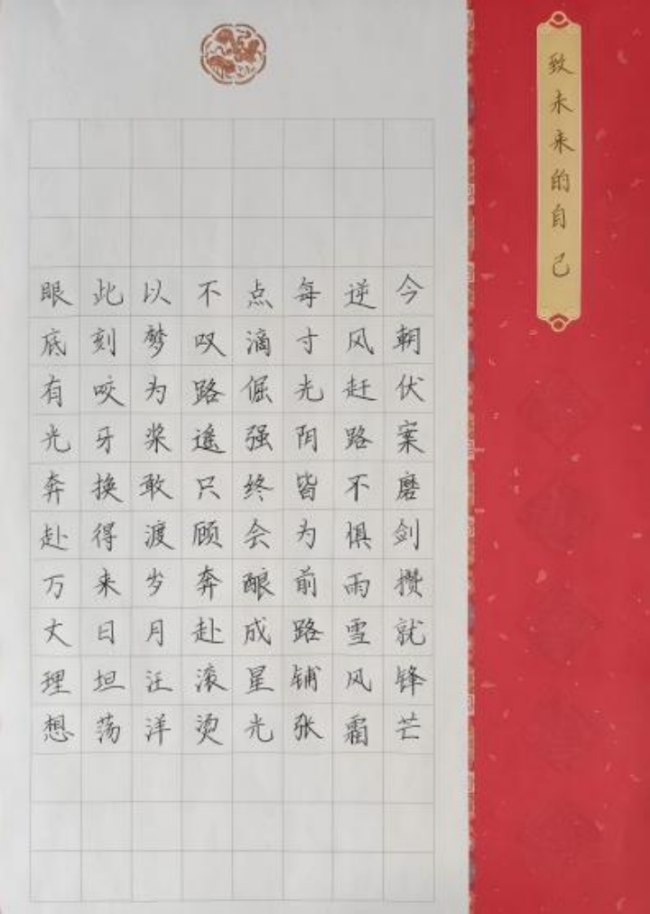 致未来的自己
今朝伏案磨剑攒就锋芒
逆风赶路不惧雨雪风霜
每寸光阴皆为前路铺张
点滴倔强终会酿成星光
不叹路遥只顾奔赴滚烫
以梦为桨敢渡岁月汪洋
此刻咬牙换得来日坦荡
眼底有光奔赴万丈理想